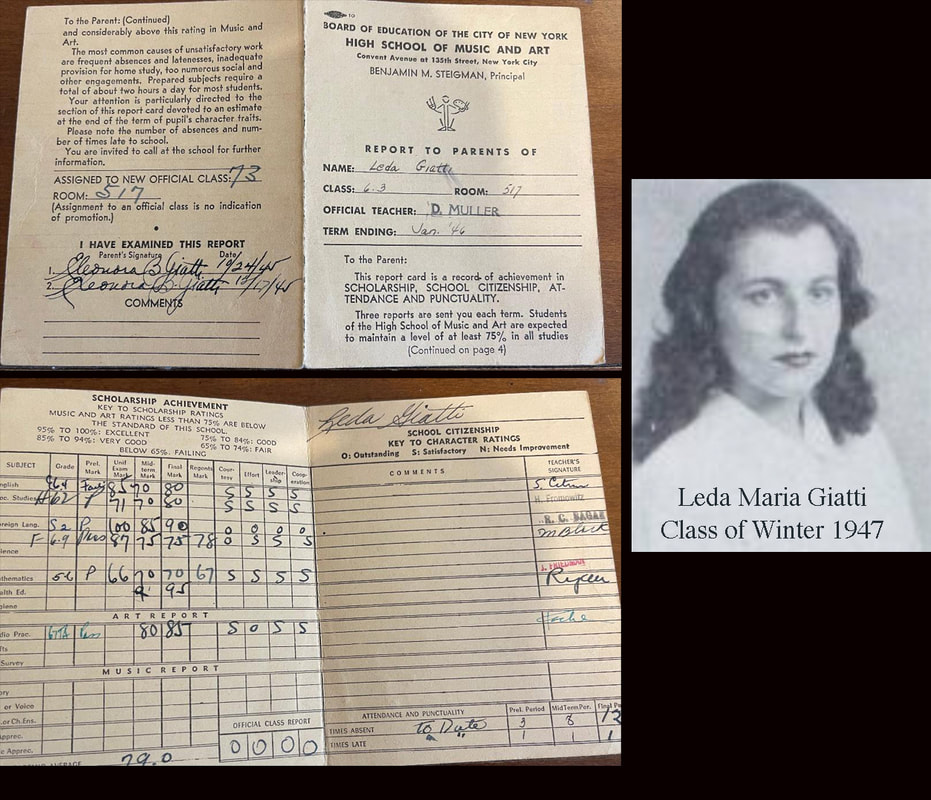 To the Parent: (Continued)
and considerably above this rating in Music and
Art.
The most common causes of unsatisfactory work
are frequent absences and latenesses, inadequate
provision for home study, too numerous social and
other engagements. Prepared subjects require a
total of about two hours a day for most students.
Your attention is particularly directed to the
section of this report card devoted to an estimate
at the end of the term of pupil's character traits.
Please note the number of absences and num-
ber of times late to school.
You are invited to call at the school for further
information.
ASSIGNED TO NEW OFFICIAL CLASS: 73
ROOM: 517
(Assignment to an official class is no indication
of promotion.)
I HAVE EXAMINED THIS REPORT
Parent's Signature Date
1. Eleonora B. Giatti 10/24/45
2. Eleonora B. Giatti 12/17/45
COMMENTS
10
BOARD OF EDUCATION OF THE CITY OF NEW YORK
HIGH SCHOOL OF MUSIC AND ART
Convent Avenue at 135th Street, New York City
BENJAMIN M. STEIGMAN, Principal
REPORT TO PARENTS OF
NAME: Leda Giatti
CLASS: 6.3 ROOM: 517
OFFICIAL TEACHER: D. MULLER
TERM ENDING: Jan. '46
To the Parent:
This report card is a record of achievement in
SCHOLARSHIP, SCHOOL CITIZENSHIP, AT-
TENDANCE AND PUNCTUALITY.
Three reports are sent you each term. Students
of the High School of Music and Art are expected
to maintain a level of at least 75% in all studies
(Continued on page 4)
SCHOLARSHIP ACHIEVEMENT
KEY TO SCHOLARSHIP RATINGS
MUSIC AND ART RATINGS LESS THAN 75% ARE BELOW
THE STANDARD OF THIS SCHOOL
95% TO 100%: EXCELLENT 75% TO 84%: GOOD
85% TO 94%: VERY GOOD 65% TO 74%: FAIR
BELOW 65%. FAILING
SUBJECT Grade Prel. Mark Unif Exam Mark Mid-term Mark Final Mark Regents Mark Cour-tesy Effort Leader-ship Coop-eration
nglish 85 70 80 S S S S
oc. Studies P 71 70 80 S S S S
oreign Lang. S2 P 100 85 90 O O O O
F 6.9 Pass 87 75 75 78 O S S S
ience
thematics P 66 70 70 67 S S S S
alth Ed. 95
giene
ART REPORT
dio Prac. Pass 80 85 S O S S
fts
Survey
MUSIC REPORT
ory
or Voice
.or Ch.Ens.
Apprec.
e Apprec.
OFFICIAL CLASS REPORT
O O O O
AVERAGE 79.0
Leda Giatti
SCHOOL CITIZENSHIP
KEY TO CHARACTER RATINGS
O: Outstanding S: Satisfactory N: Needs Improvement
COMMENTS
TEACHER'S
SIGNATURE
S. Citron
H. Fromowitz
M Black
J. FRIEDMAN
ATTENDANCE AND PUNCTUALITY Prel. Period MidTerm Per. Final P
TIMES ABSENT to Date 3 8 12
TIMES LATE 1 1 1
Leda Maria Giatti
Class of Winter 1947